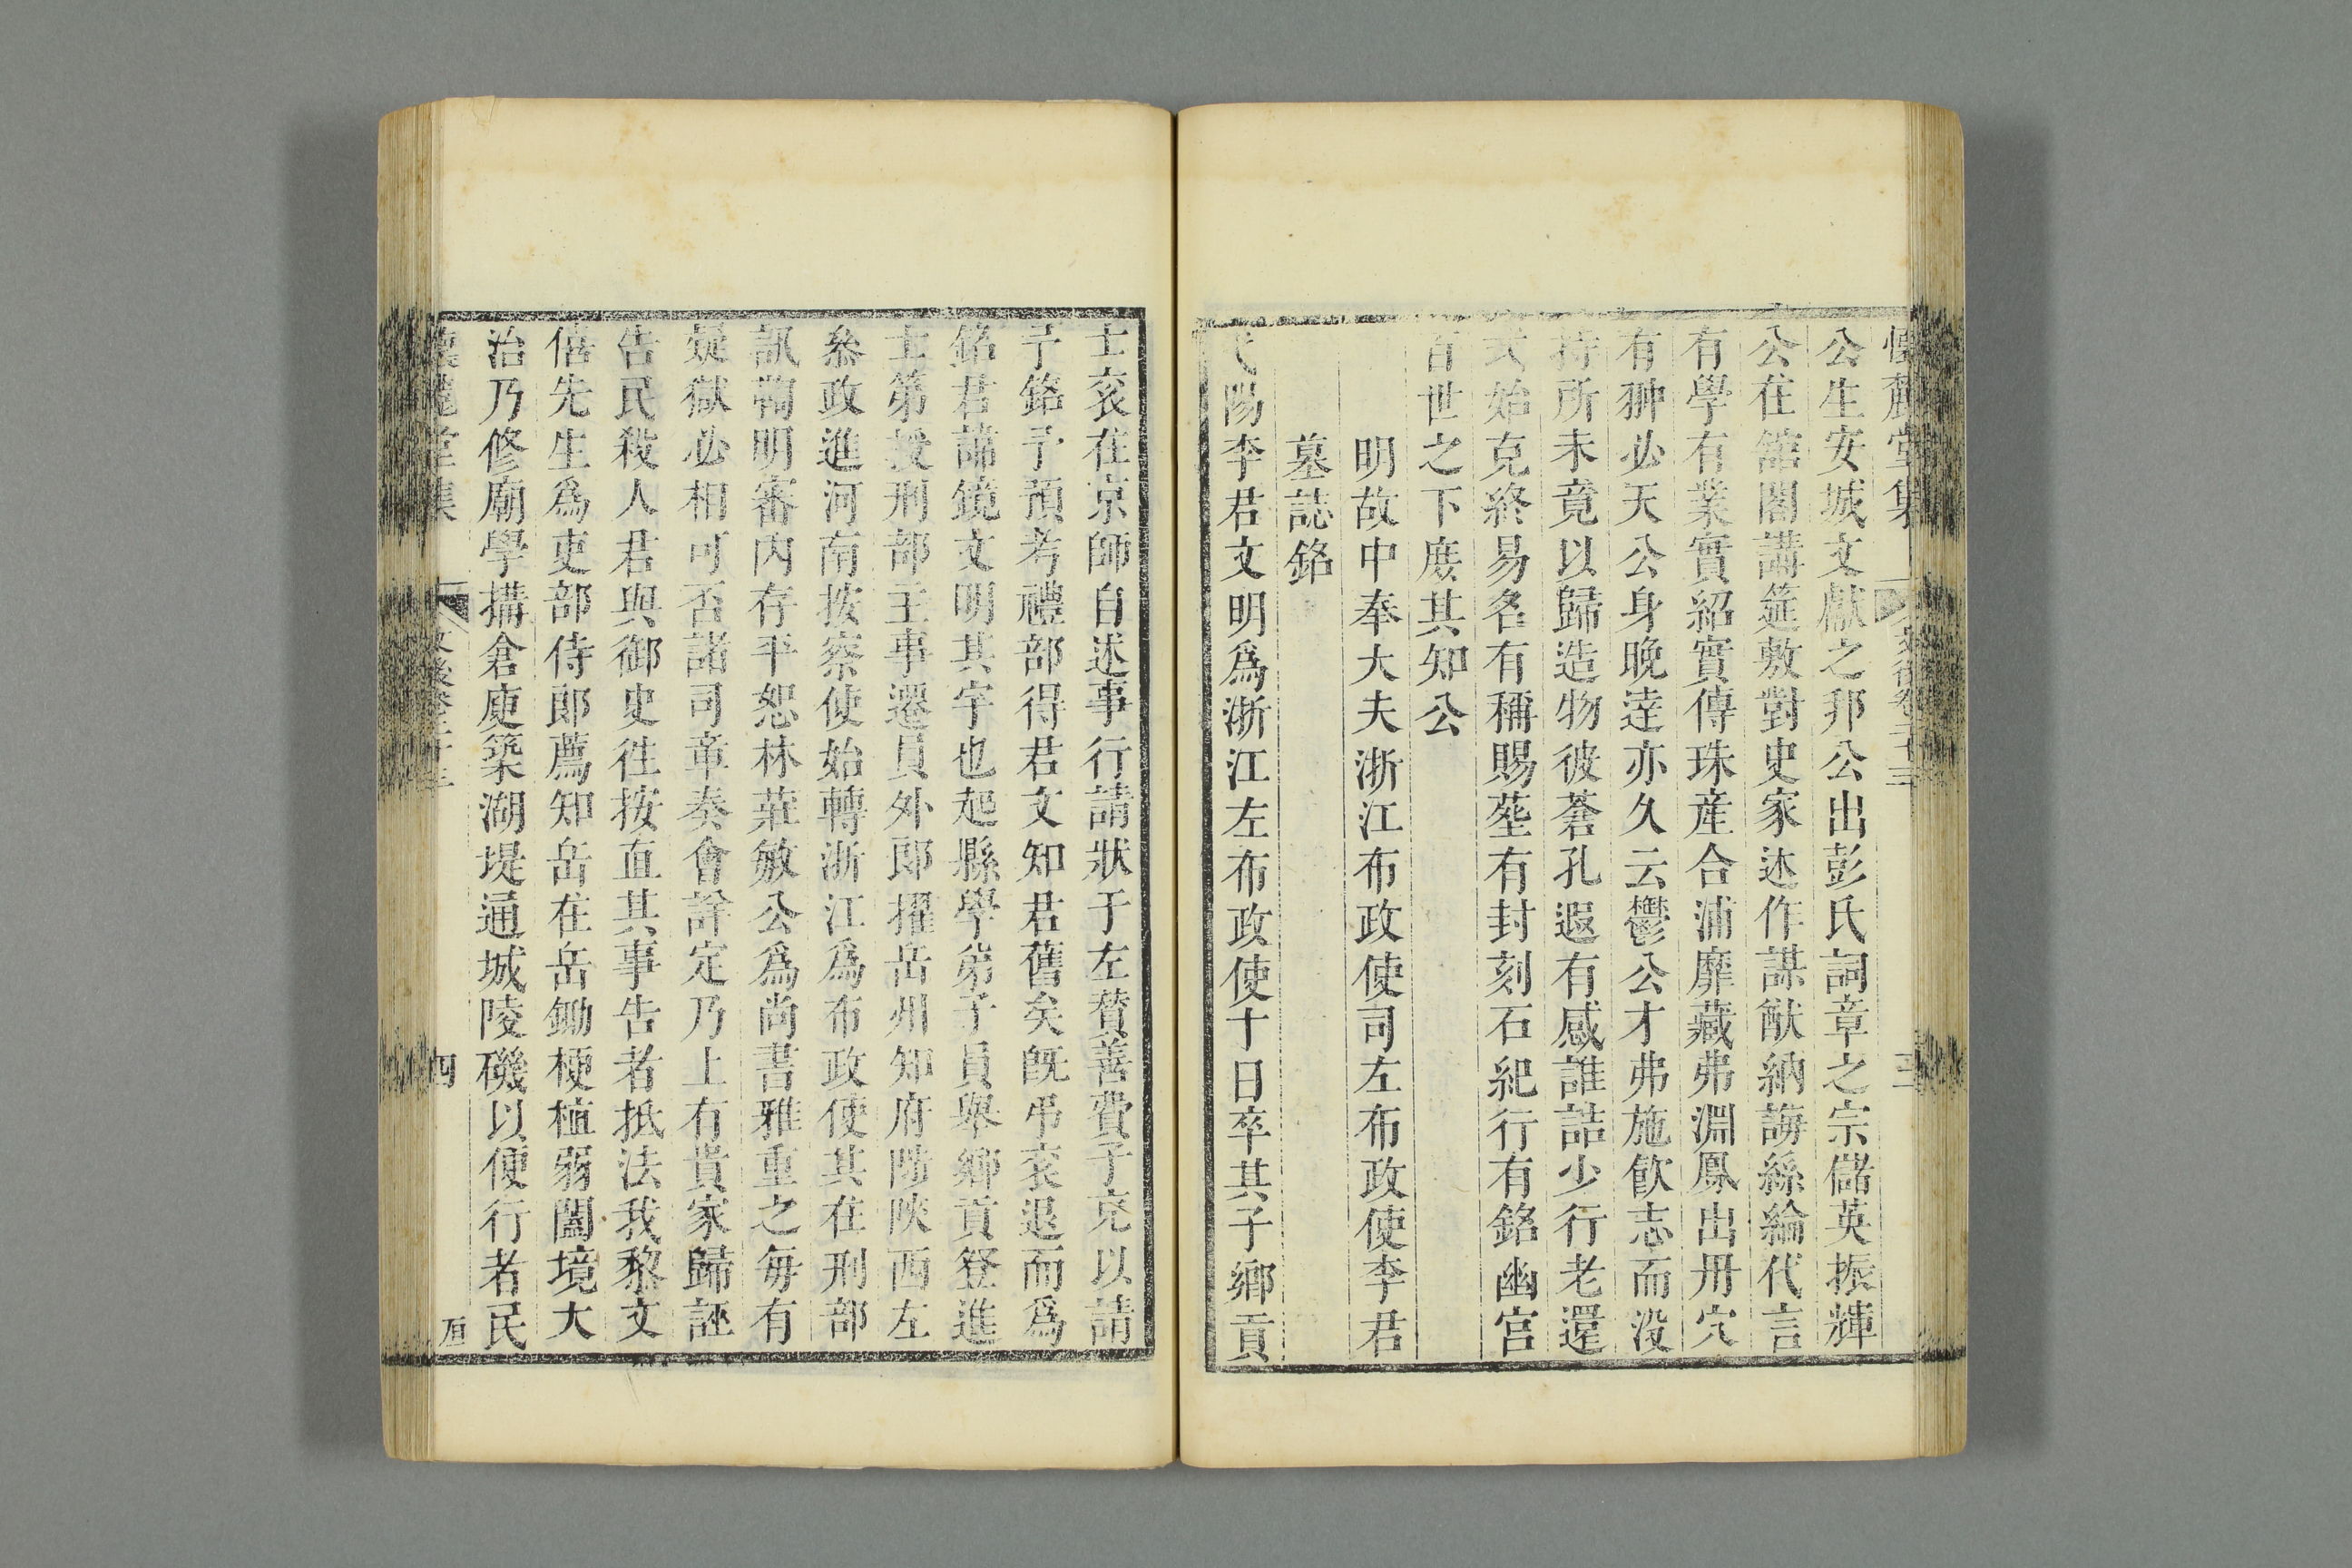 公生安城文獻之邦公出彭氏詞章之宗儲英振輝
公在舘閣講筵敷對史家述作謀猷納誨絲綸代言
有學有業實紹實傳珠産合浦靡藏弗淵鳳出丹穴
有翀必天公身晚逹亦久云鬱公才弗施飲志而没
持所未竟以歸造物彼蒼孔遐有感誰詰少行老還
文始克終易名有稱賜塟有封刻石紀行有銘幽宫
百世之下庶其知公
明故中奉大夫浙江布政使司左布政使李君
墓誌銘
弋陽李君文明爲浙江左布政使十日卒其子鄉貢
士衮在京師自述事行請狀于左賛善費子充以請
予銘予頊考禮部得君文知君舊矣既弔衮退而爲
銘君諱鏡文明其字也起縣學弟子員舉鄉貢登進
士第授刑部主事遷員外郎擢岳州知府陟陝西左
叅政進河南按察使始轉浙江爲布政使其在刑部
訊鞫明審内存平恕林莊敏公爲尚書雅重之每有
疑獄必相可否諸司章奏會詳定乃上有貴家歸誣
告民殺人君與御史徃按直其事告者抵法我黎文
僖先生爲吏部侍郎薦知岳在岳鋤梗植弱闔境大
治乃修廟學搆倉庾築湖堤通城陵磯以便行者民
懷麓堂集
四